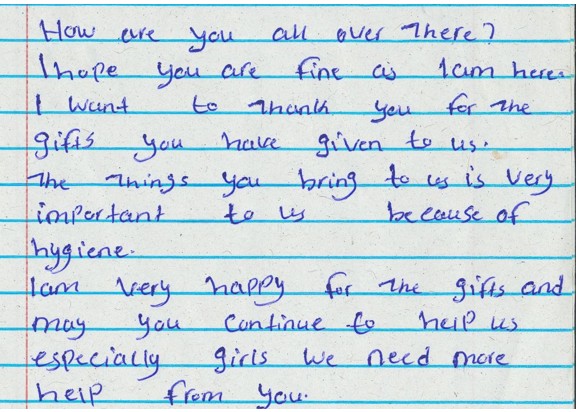 How are you all over there?
I hope you are fine as Iam here.
I want to thank you for the
gifts you have given to us.
The things you bring to us is very
important to us because of
hygiene.
Iam very happy for the gifts and
may you continue to help us
especially girls we need more
help from you.